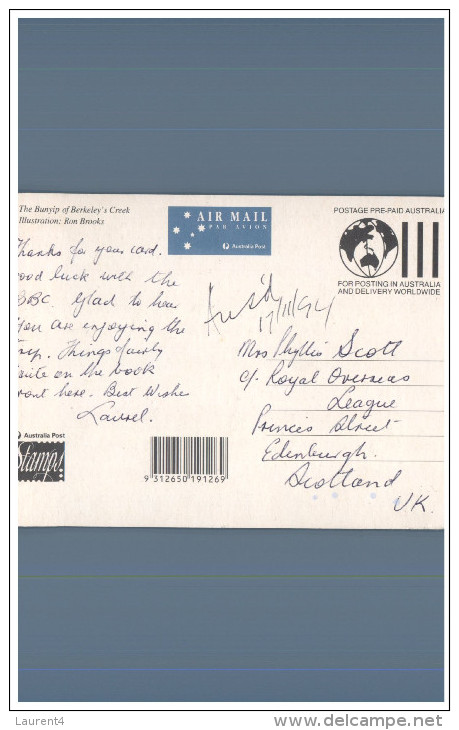 The Bunyip of Berkeley's Creek
Illustration: Ron Brooks
AIR MAIL
PAR AVION
Australia Post
POSTAGE PRE-PAID AUSTRALIA
FOR POSTING IN AUSTRALIA
AND DELIVERY WORLDWIDE
Thanks for your card.
ood luck with the
BBC. Glad to hear
you are enjoying the
Trip. Things fairly
uite on the book
ront here. Best Wishes
Laurel.
17/11/94
Mrs Phyllis Scott
c/. Royal Overseas
League
Princes Street
Edenburgh.
Scotland
UK.
Australia Post
Stamps!
9 312650 191269
Laurent4
www.delcampe.net